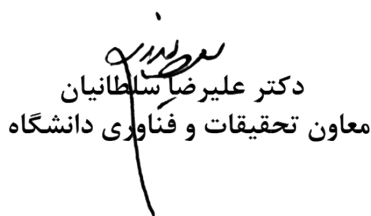 دکتر علیرضا سلطانیان
معاون تحقیقات و فناوری دانشگاه